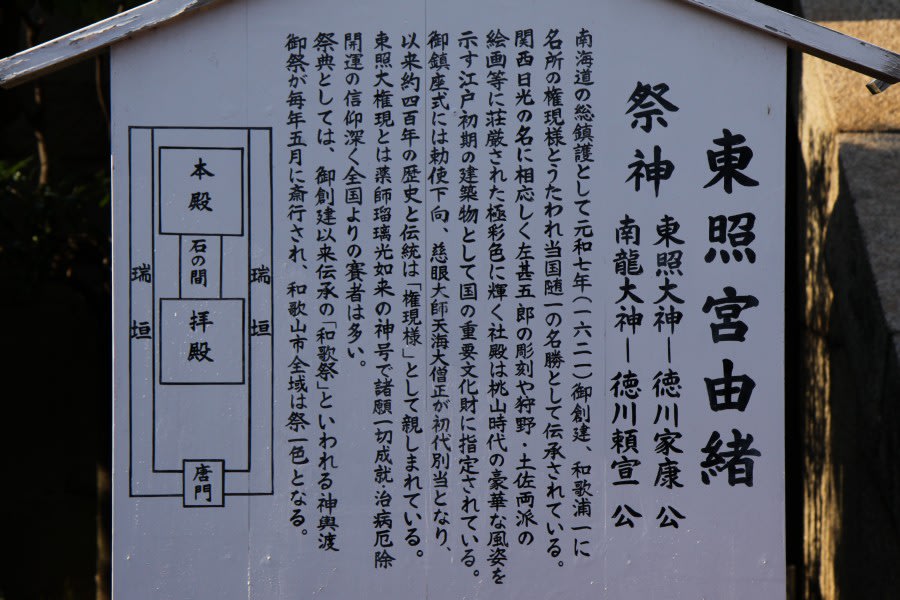 東照宮由緒
祭神
東照大神―徳川家康 公
南龍大神―徳川頼宣 公
南海道の総鎮護として元和七年(一六二一)御創建、和歌浦一に
名所の権現様とうたわれ当国随一の名勝として伝承されている。
関西日光の名に相応しく左甚五郎の彫刻や狩野・土佐両派の
絵画等に荘厳された極彩色に輝く社殿は桃山時代の豪華な風姿を
示す江戸初期の建築物として国の重要文化財に指定されている。
御鎮座式には勅使下向、慈眼大師天海大僧正が初代別当となり、
以来約四百年の歴史と伝統は「権現様」として親しまれている。
東照大権現とは薬師瑠璃光如来の神号で諸願一切成就、治病厄除
開運の信仰深く全国よりの賽者は多い。
祭典としては、御創建以来伝承の「和歌祭」といわれる神輿渡
御祭が毎年五月に斎行され、和歌山市全域は祭一色となる。
瑞垣
本殿
石の間
拝殿
唐門
瑞垣